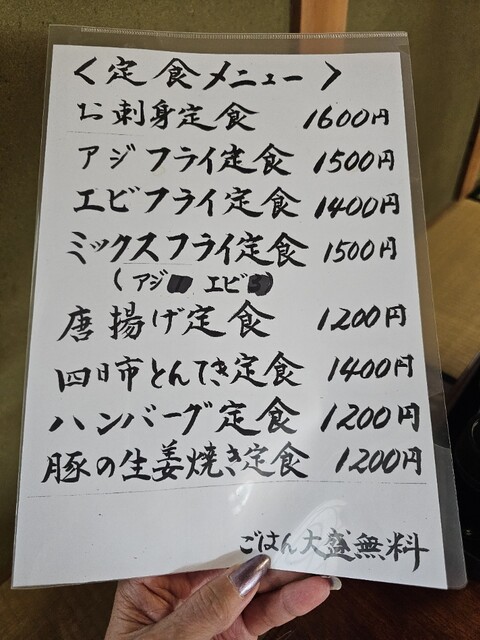 〈定食メニュー〉
お刺身定食 1600円
アジフライ定食 1500円
エビフライ定食 1400円
ミックスフライ定食 1500円
(アジ エビ )
唐揚げ定食 1200円
四日市とんてき定食 1400円
ハンバーグ定食 1200円
豚の生姜焼き定食 1200円
ごはん大盛無料